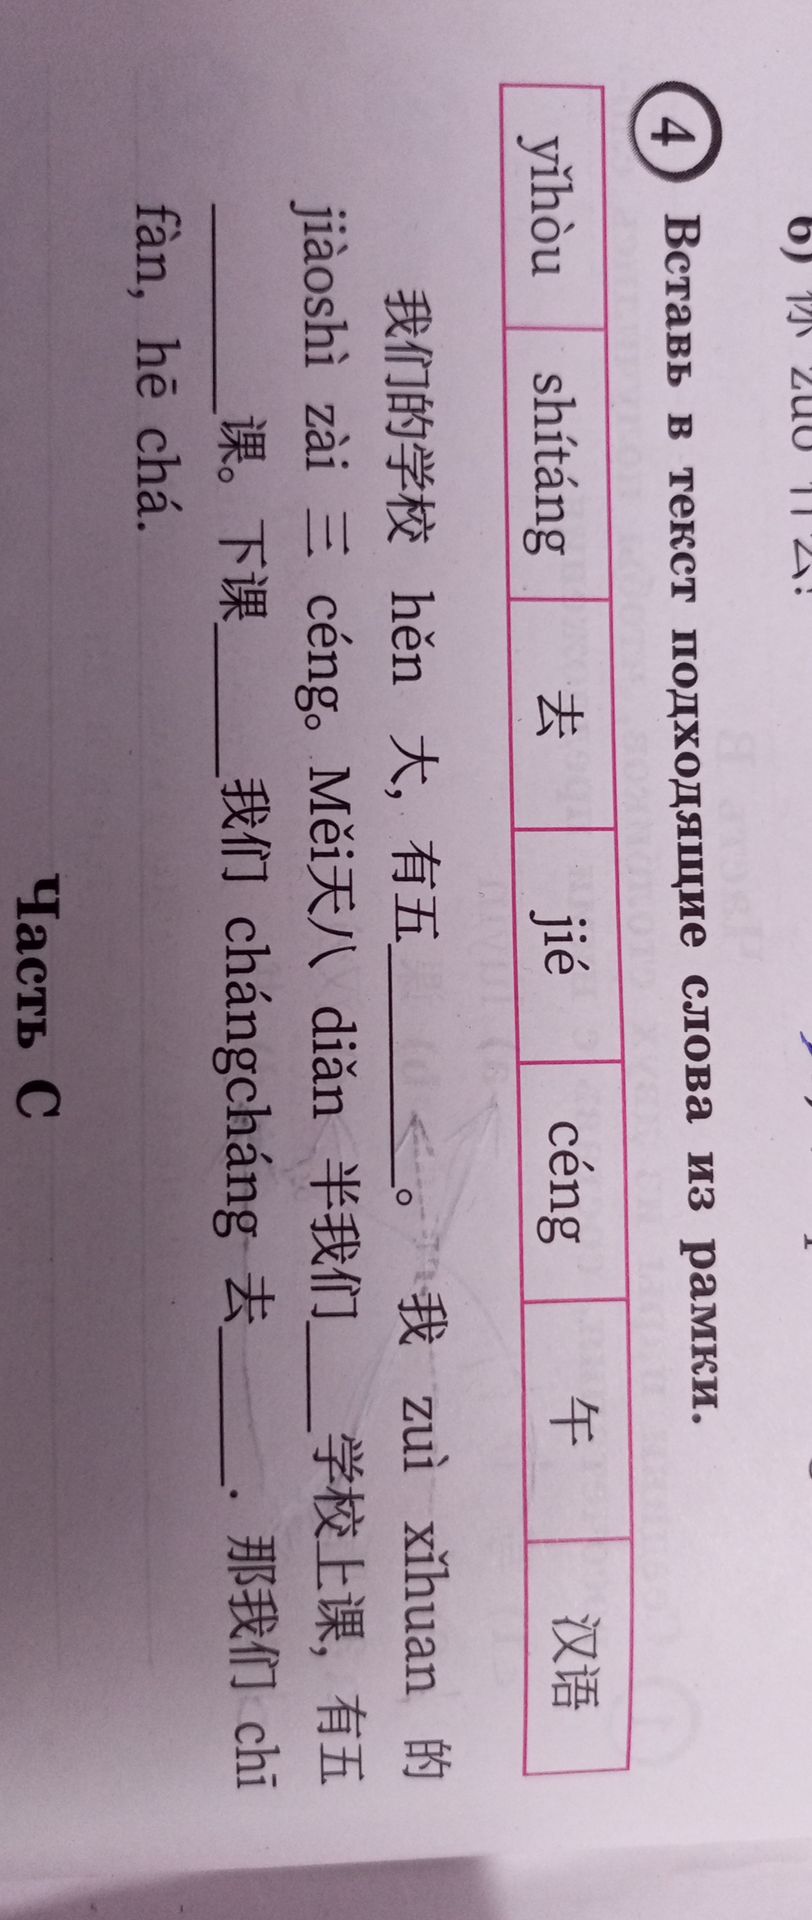 ④ Вставь в текст подходящие слова из рамки.
yǐhòu shítáng 去 jié céng 午 汉语
我们的学校 hěn 大，有五________。 我 zuì xǐhuan 的
jiàoshì zài 三 céng。Měi天八 diǎn 半我们____学校上课，有五
_______课。下课_____我们 chángcháng 去_____. 那我们 chī
fàn, hē chá.
Часть C